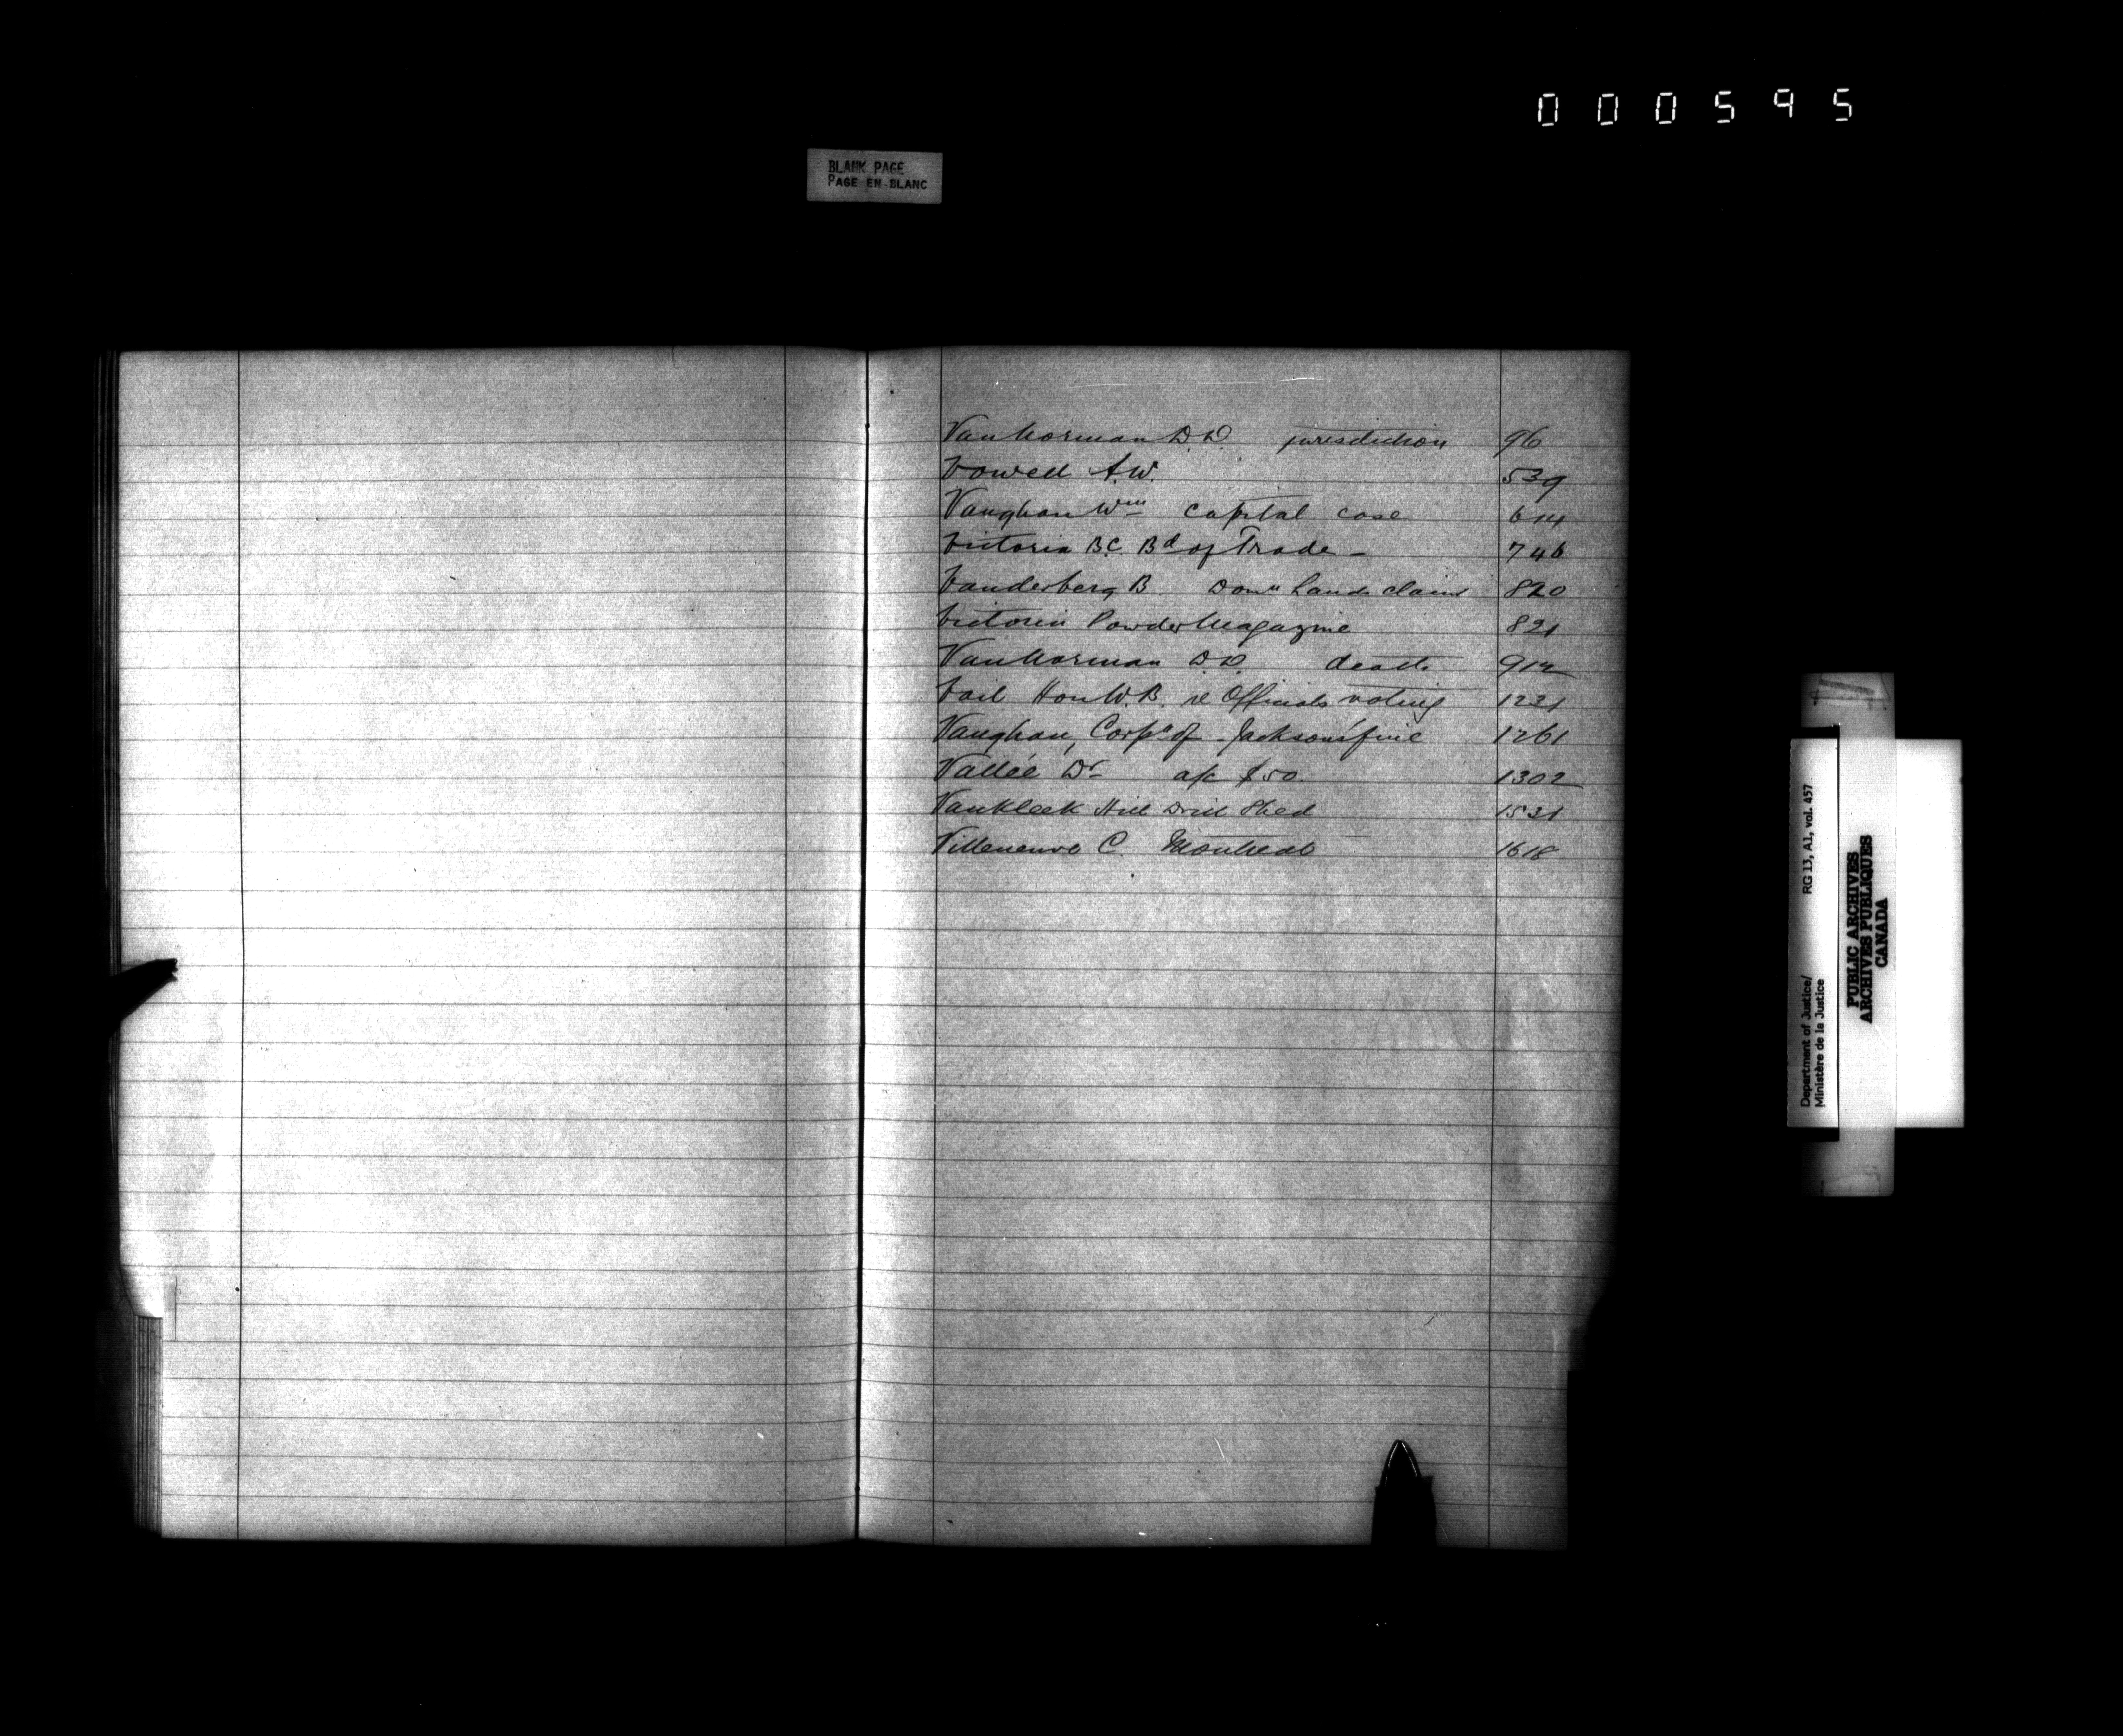 000595
BLANK PAGE
PAGE EN BLANC
VanNorman D.D. jurisdiction 96
Vowell A.W. 539
Vaughan Wm capital case 614
Victoria B.C. Bd of Trade - 746
Vanderberg B Domn Lands claim 820
Victoria Powder Magazine 821
VanNorman D.D. death 912
Vail Hon W.B. re Officials voting 1221
Vaughan, Corpn of - Jackson's fine 1261
Vallée Dr a/c $50. 1302
Vankleek Hill Drill Shed 1531
Villeneuve C. Montreal 1618
Department of Justice/ RG 13, A1, vol. 457
Ministère de la Justice
PUBLIC ARCHIVES
ARCHIVES PUBLIQUES
CANADA